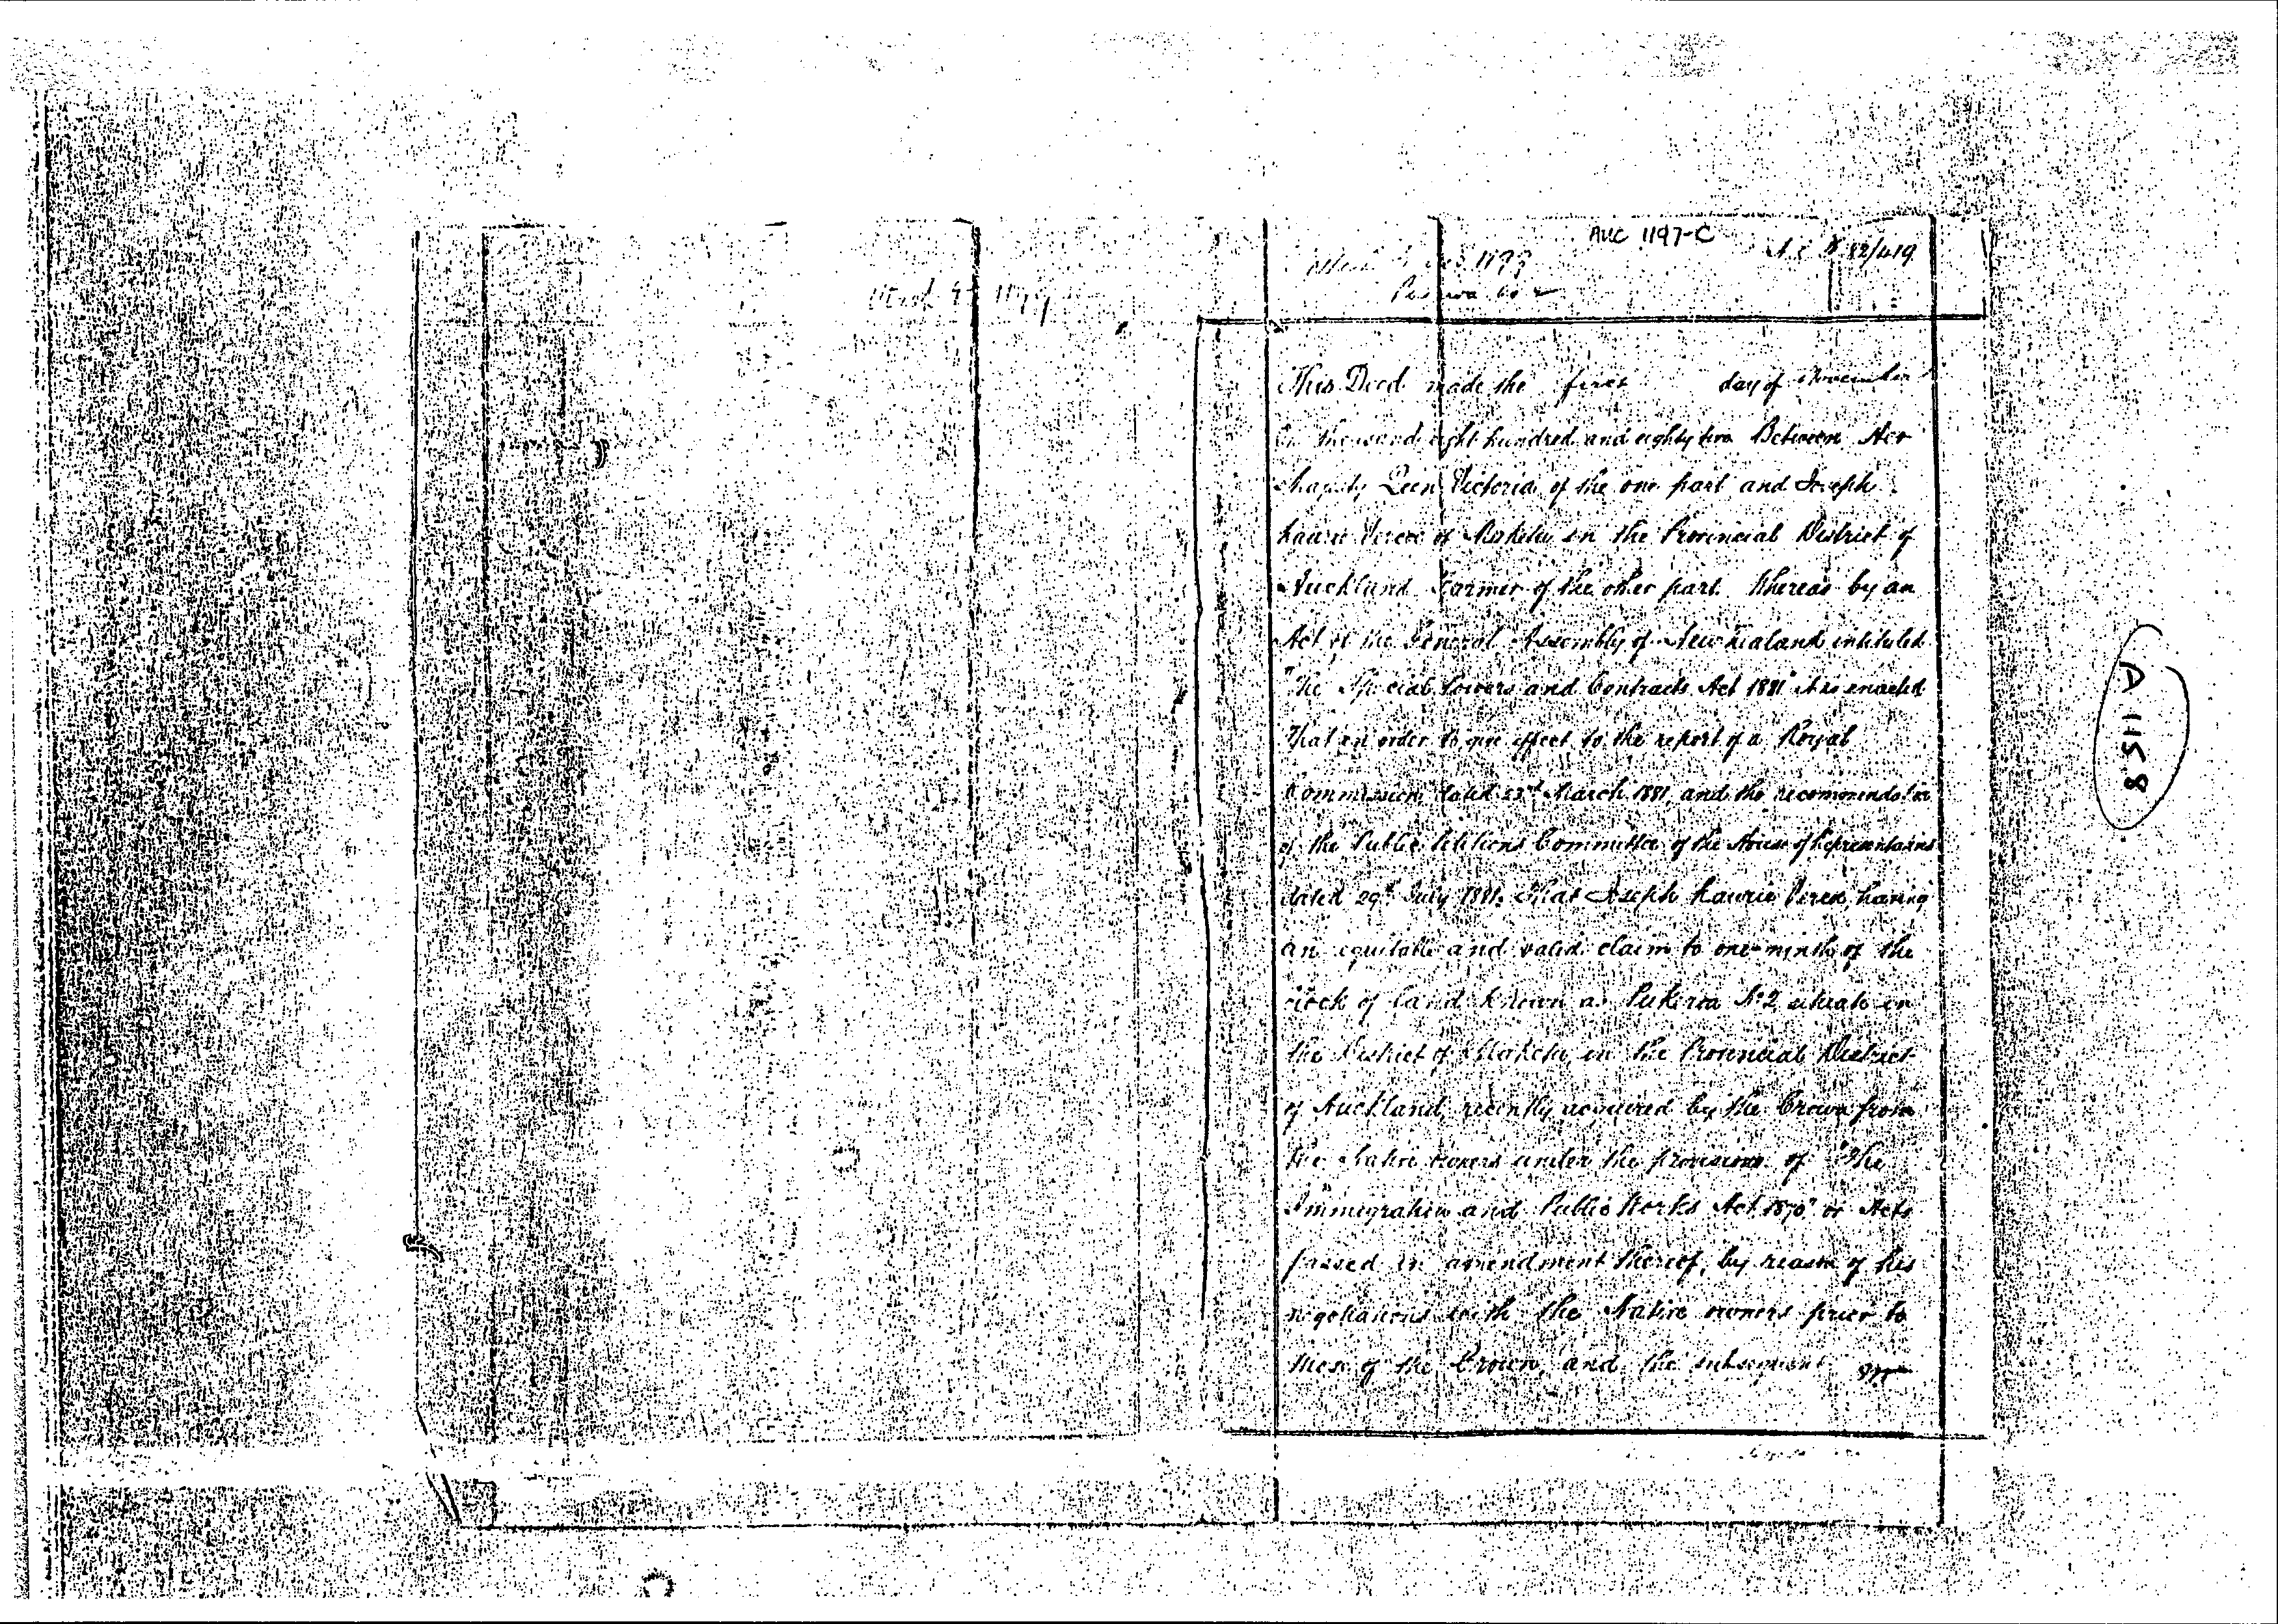 AUC 1197-C
82/419
1197
Pukeroa No 2
This Deed made the first day of November
thousand eight hundred and eighty two Between Her
Majesty Queen Victoria of the one part and Joseph
Laurie of Maketu in the Provincial District of
Auckland Farmer of the other part. Whereas by an
Act of the General Assembly of New Zealand intituled
"The Special Powers and Contracts Act 1881" it is enacted
That in order to give effect to the report of a Royal
Commission dated 23rd March 1881, and the recommendation
of the Public Petitions Committee of the House of Representatives
dated 29th July 1881. That Joseph Laurie having
an equitable and valid claim to one-ninth of the
block of land known as Pukeroa No 2 situate in
the District of Maketu in the Provincial District
of Auckland, recently acquired by the Crown from
the Native owners under the provisions of "The
Immigration and Public Works Act 1870" or Acts
passed in amendment thereof, by reason of his
negotiations with the Native owners prior to
those of the Crown, and the subsequent
A 1158